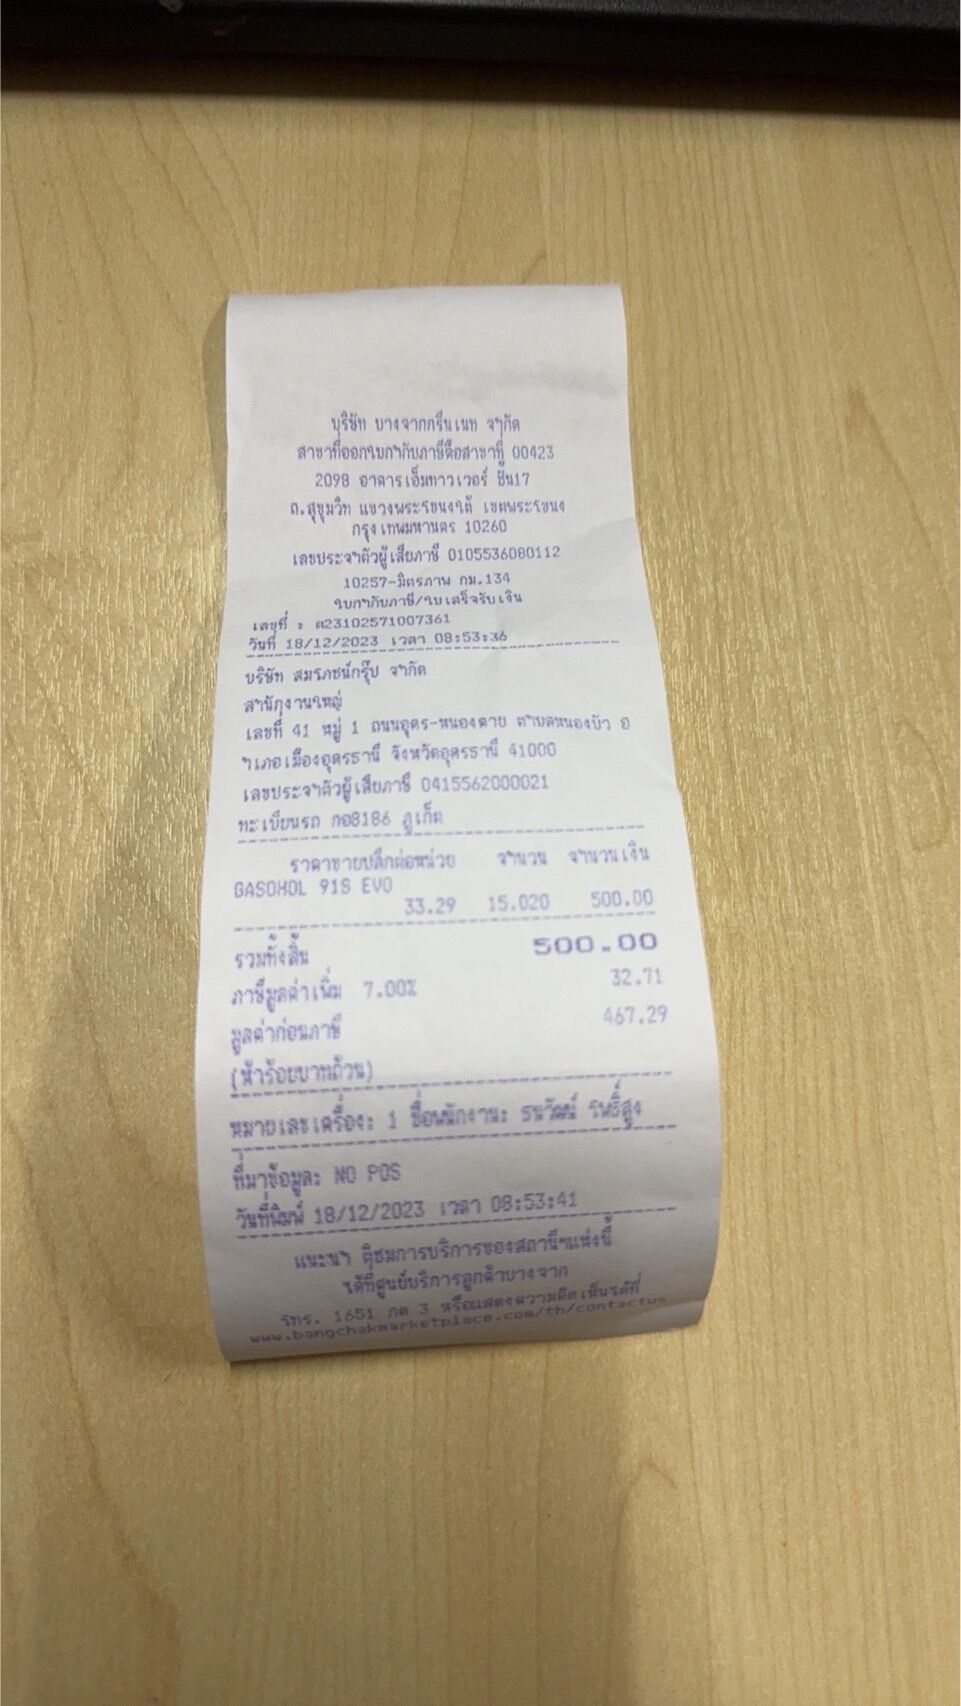 บริษัท บางจากกรีนเนท จำกัด
สาขาที่ออกใบกำกับภาษีคือสาขาที่ 00423
2098 อาคารเอ็มทาวเวอร์ ชั้น17
ถ.สุขุมวิท แขวงพระโขนงใต้ เขตพระโขนง
กรุงเทพมหานคร 10260
เลขประจำตัวผู้เสียภาษี 0105536080112
10257-มิตรภาพ กม.134
ใบกำกับภาษี/ใบเสร็จรับเงิน
เลขที่ : ต23102571007361
วันที่ 18/12/2023 เวลา 08:53:36
บริษัท สมโภชน์กรุ๊ป จำกัด
สำนักงานใหญ่
เลขที่ 41 หมู่ 1 ถนนอุดร-หนองคาย ตำบลหนองบัว อ
ำเภอเมืองอุดรธานี จังหวัดอุดรธานี 41000
เลขประจำตัวผู้เสียภาษี 0415562000021
ทะเบียนรถ กอ8186 ภูเก็ต
ราคาขายปลีกต่อหน่วย จำนวน จำนวนเงิน
GASOHOL 91S EVO
33.29 15.020 500.00
รวมทั้งสิ้น 500.00
ภาษีมูลค่าเพิ่ม 7.00% 32.71
มูลค่าก่อนภาษี 467.29
(ห้าร้อยบาทถ้วน)
หมายเลขเครื่อง: 1 ชื่อพนักงาน: ธนวัฒน์ โพธิ์สูง
ที่มาข้อมูล: NO POS
วันที่พิมพ์ 18/12/2023 เวลา 08:53:41
แนะนำ ติชมการบริการของสถานีฯแห่งนี้
ได้ที่ศูนย์บริการลูกค้าบางจาก
โทร. 1651 กด 3 หรือแสดงความคิดเห็นได้ที่
www.bangchakmarketplace.com/th/contactus